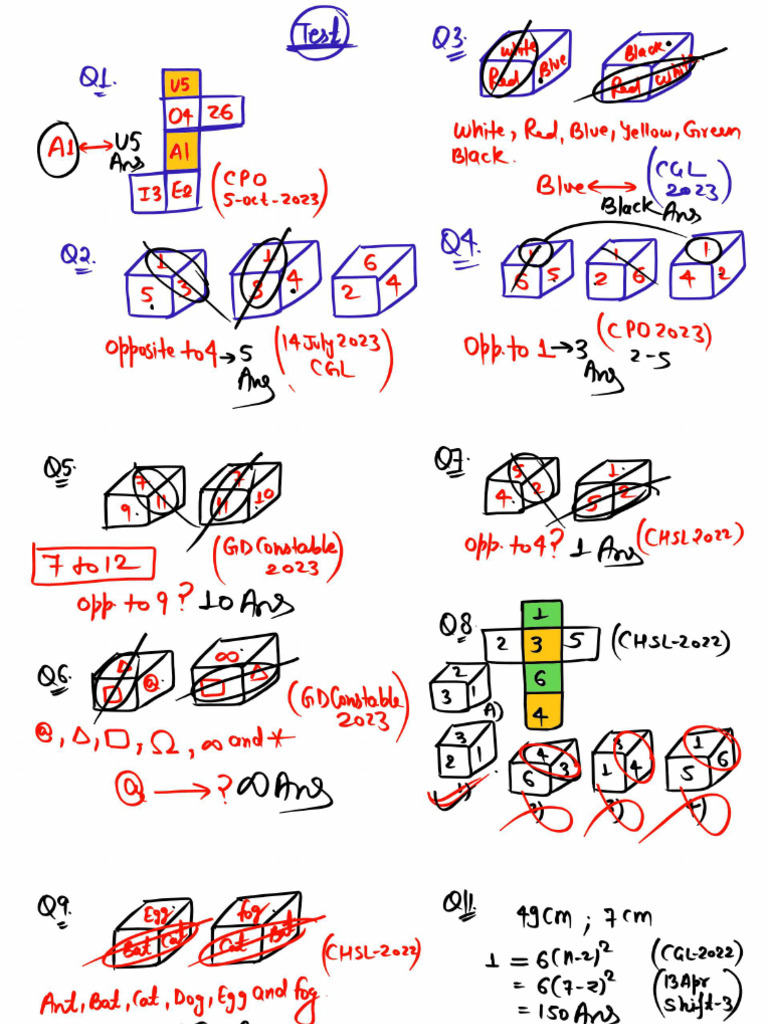 Test
Q1.
U5
O4 26
A1
I3 E2
A1 ↔ U5
Ans
(CPO
5-oct-2023)
Q3
White
Red Blue
Black
Red White
White, Red, Blue, Yellow, Green
Black.
Blue ↔ Black Ans
(CGL
2023)
Q2
1
5 3
1
3 4
6
2 4
Opposite to 4 → 5
Ans
(14 July 2023
CGL)
Q4
1
6 5
1
2 6
1
4 2
Opp. to 1 → 3
Ans
(CPO 2023)
2-5
Q5
7
9 11
7
11 10
7 to 12
(GD Constable
2023)
opp to 9? 10 Ans
Q7
5
4 2
1
5 2
Opp. to 4? 1 Ans
(CHSL 2022)
Q6
△
□ @
∞
□ △
(GD Constable
2023)
@, △, □, Ω, ∞ and *
@ → ? ∞ Ans
Q8
1
2 3 5
6
4
(CHSL-2022)
2
3 1
A)
3
2 1
1)
4
6 3
2)
3
1 4
3)
1
5 6
4)
Q9
Egg
Bat Cat
fog
Cat Bat
(CHSL-2022)
Ant, Bat, Cat, Dog, Egg and fog.
Q11.
49cm ; 7cm
1 = 6(n-2)²
= 6(7-2)²
= 150 Ans
(CGL-2022)
(13 Apr
Shift-3)